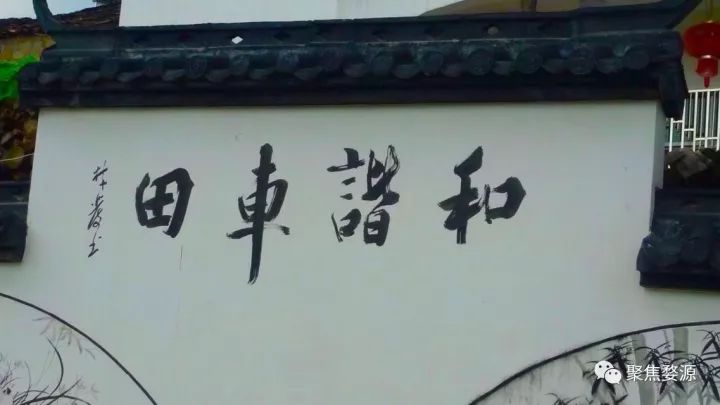 和諧車田
聚焦婺源